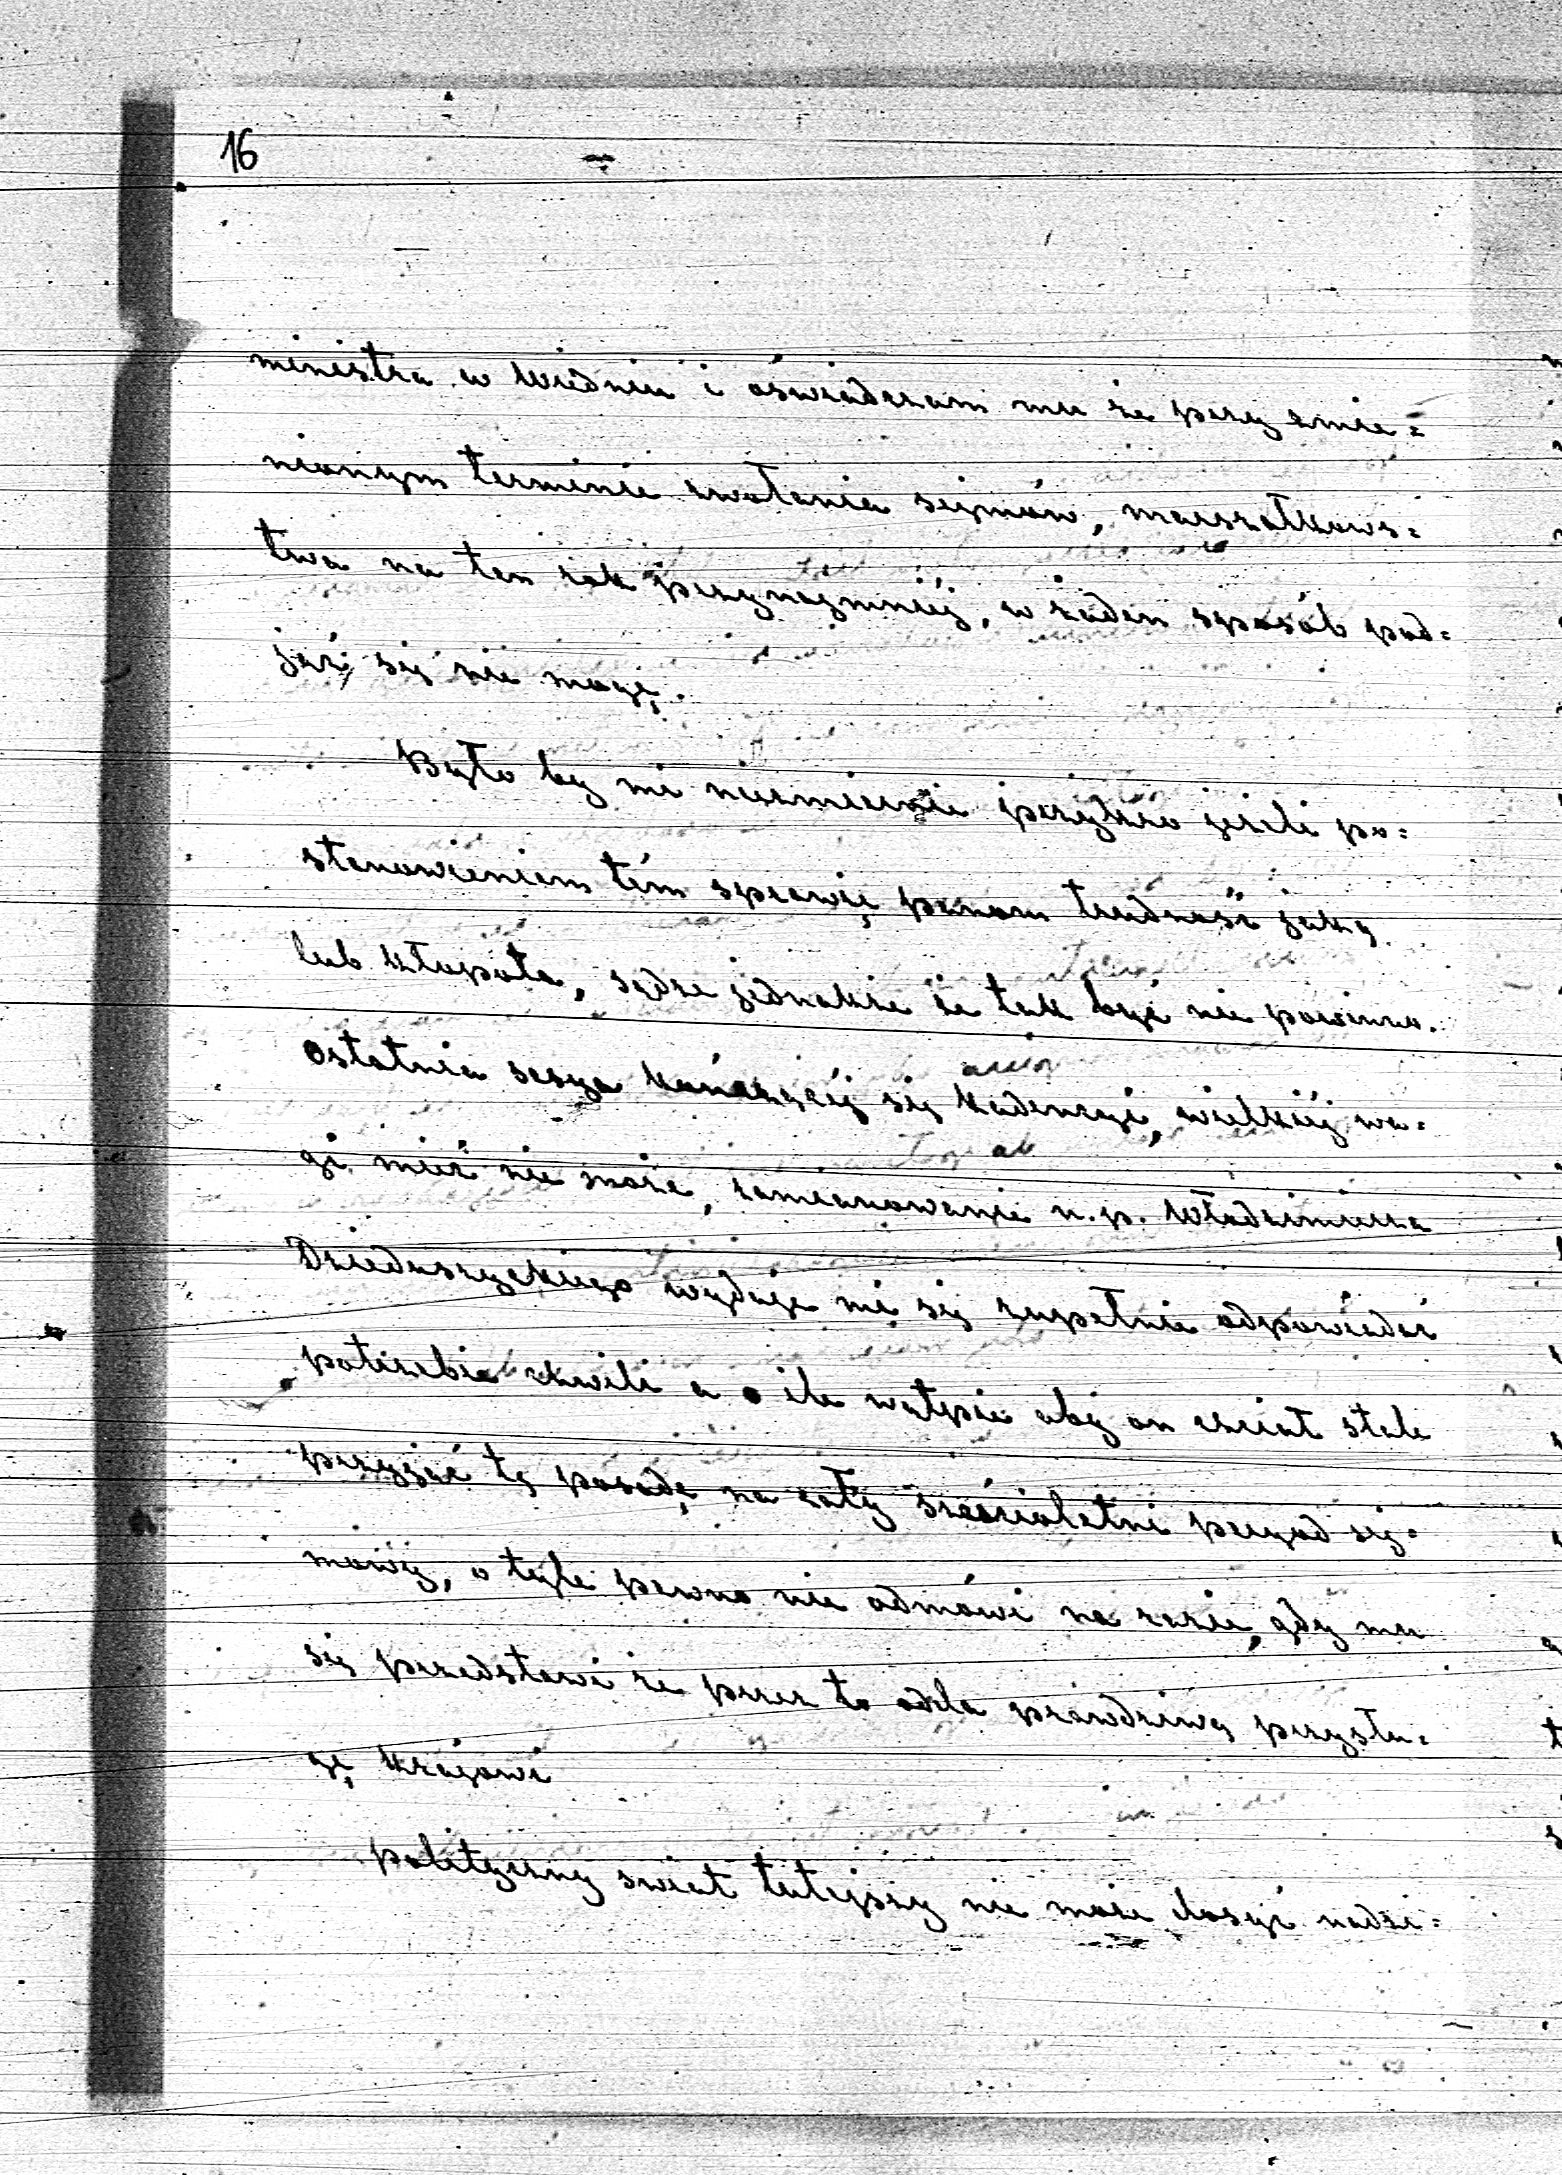 16
ministra w Wiedniu i oświadczam mu że przy zmie=
nionym terminie zwołania sejmów, marszałkows=
twa na ten rok przynajmniéj, w żaden sposób pod=
jąć się nie mogę.
Było by mi niezmiernie przykro jeżeli po=
stanowieniem tém sprawię panom trudność jaką
lub kłopota, sądzę jednakże że tak być nie powinno.
Ostatnia sesya kończącéj się kadencyi, wielkiéj wa=
gi mieć nie może, zamianowanie n.p. Włodzimierza
Dzieduszyckiego wydaje mi się zupełnie odpowiedać
potrzebie chwili a o ile wątpię aby on chciał stale
przyjąć tę posadę na cały sześcioletni peryod sej=
mowy, o tyle pewno nie odmówi na razie, gdy mu
się przedstawi że przez to odda prawdziwą przysłu=
gę krajowi
Polityczny świat tutejszy nie może dosyć nadzi=